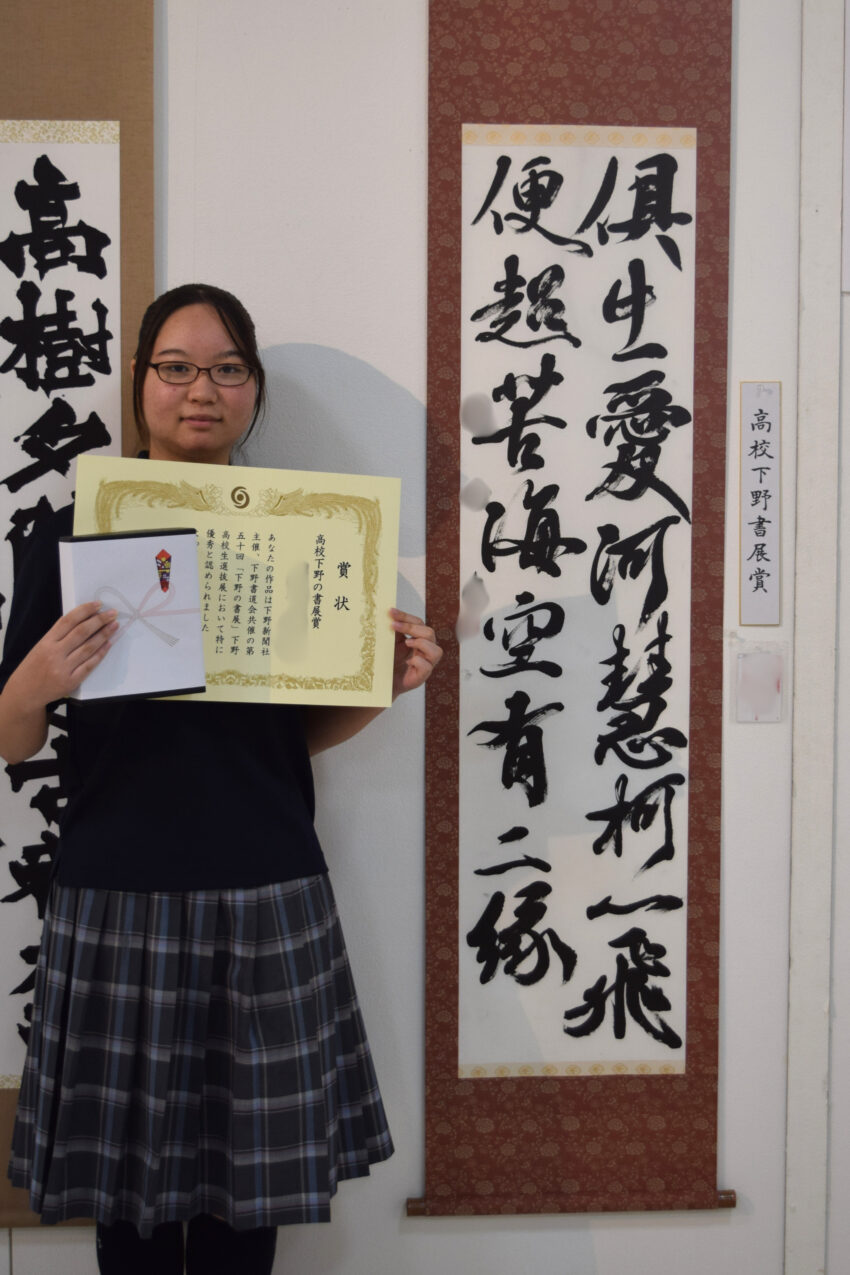 俱出愛河慧柯一飛
便超苦海空有二縁
高樹夕
高校下野書展賞
賞状
高校下野の書展賞
あなたの作品は下野新聞社
主催、下野書道会共催の第
五十回「下野の書展」下野
高校生選抜展において特に
優秀と認められました